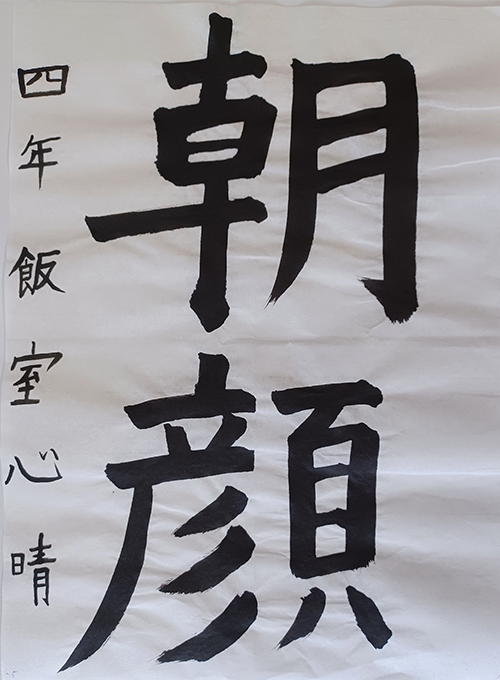 朝顔
四年飯室心晴